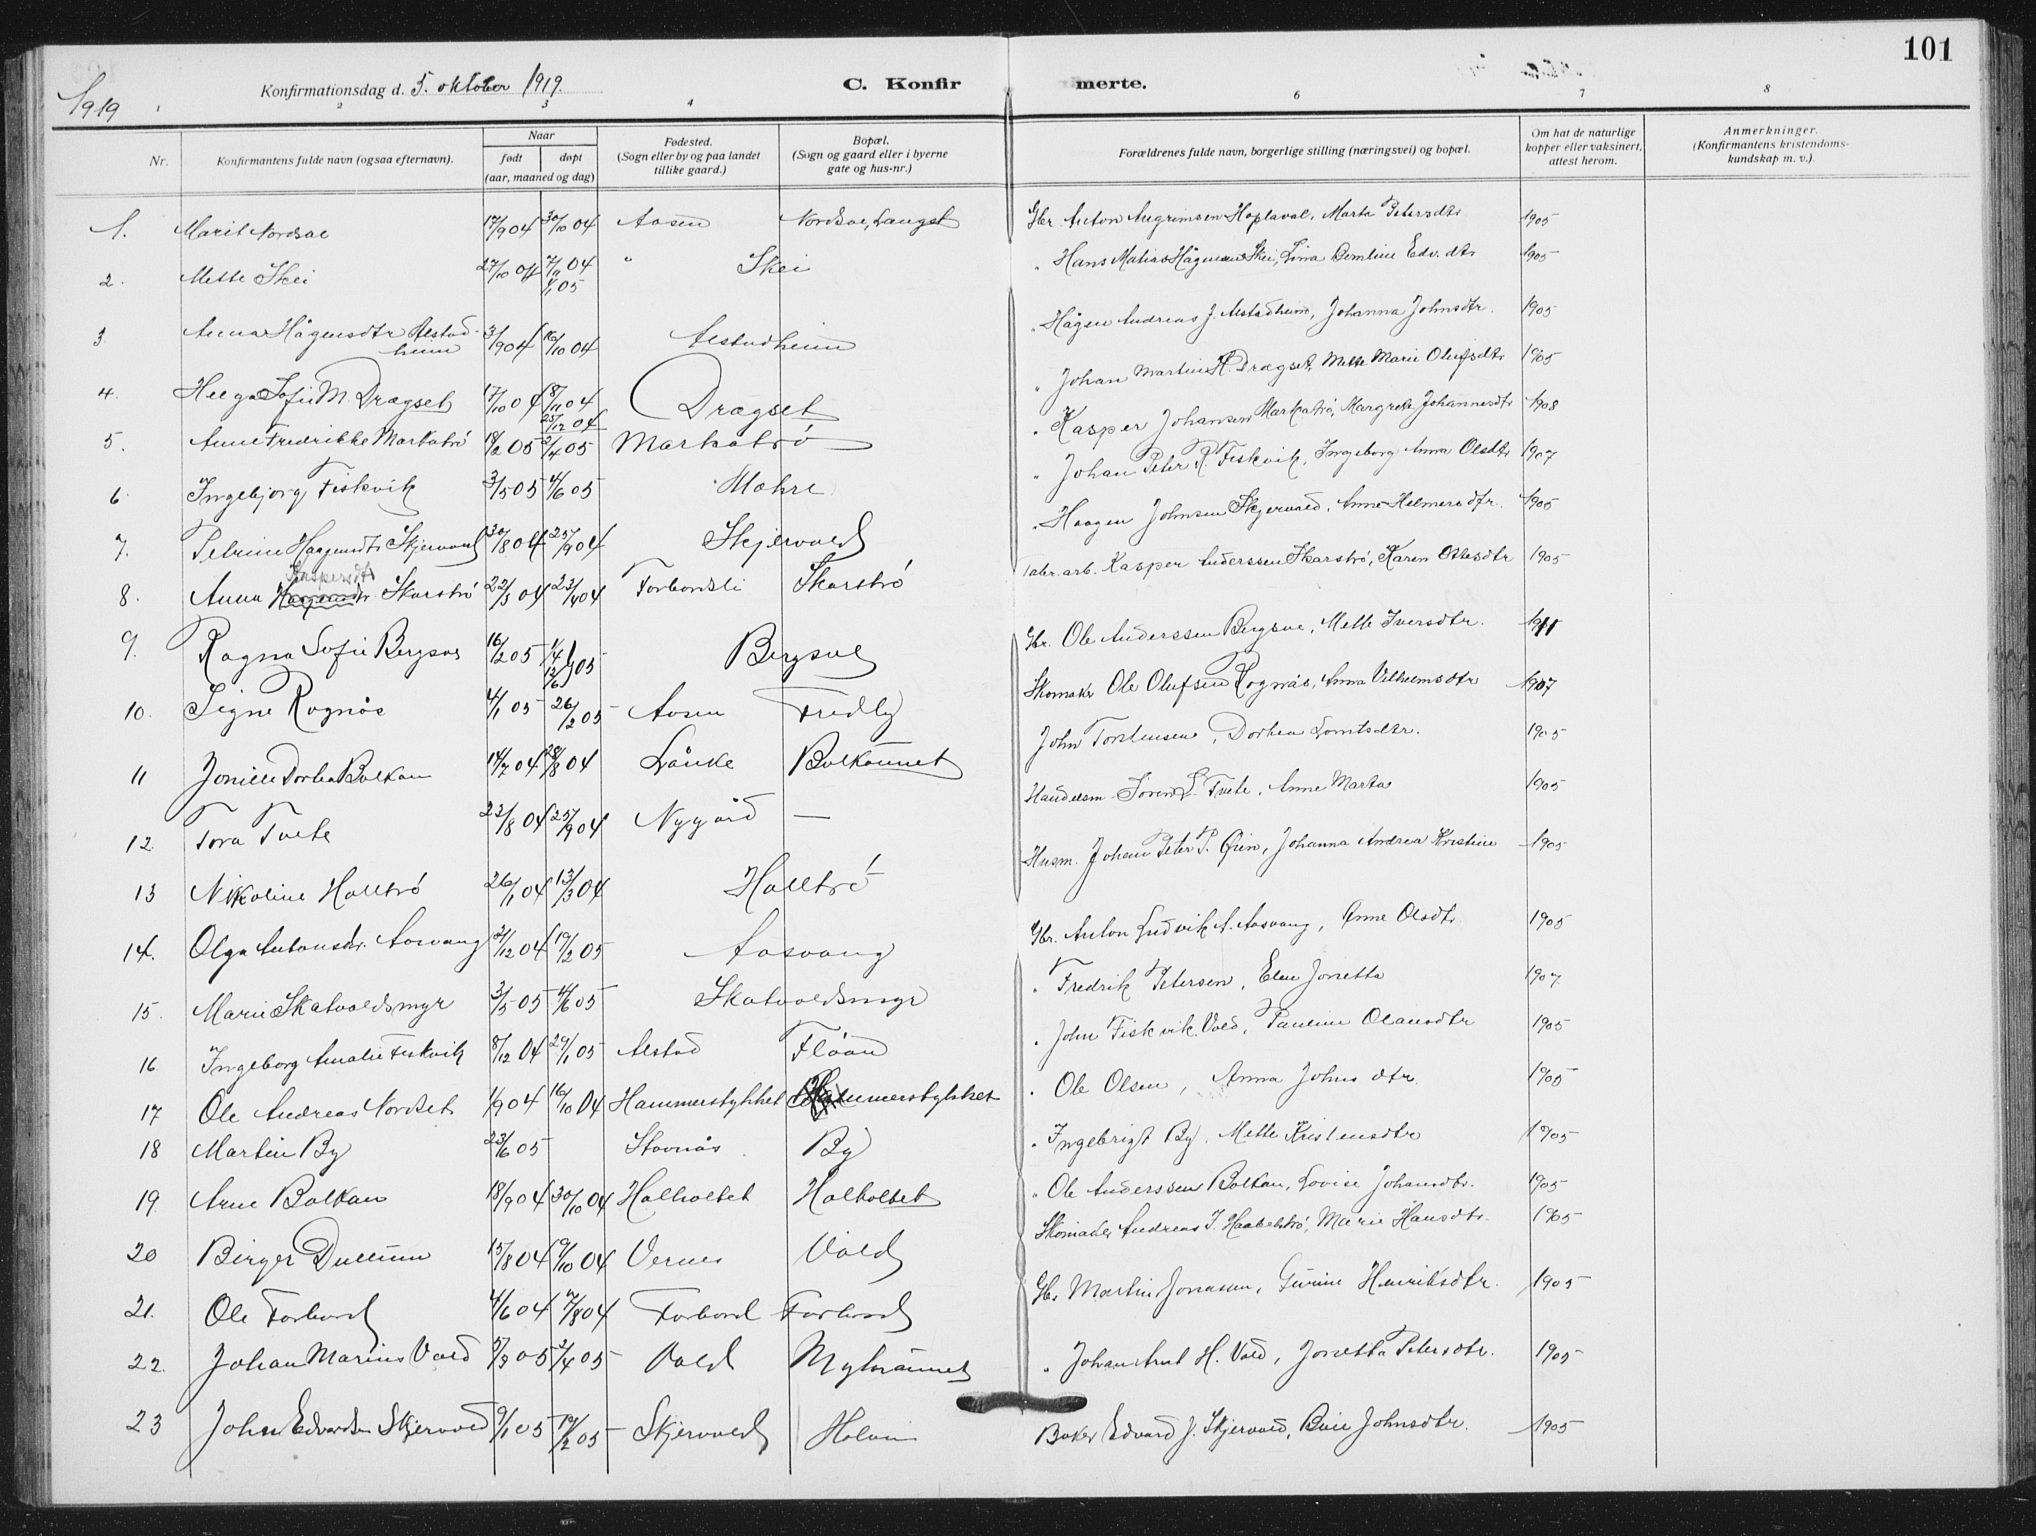 101
1919
Konfirmationsdag d. 5. oktober 1919.
C. Konfirmerte.
1 2 3 4 6 7 8
Nr. Konfirmantens fulde navn (ogsaa efternavn). Naar født døpt (aar, maaned og dag) Fødested. (Sogn eller by og paa landet tillike gaard.) Bopæl. (Sogn og gaard eller i byerne gate og hus-nr.) Forældrenes fulde navn, borgerlige stilling (næringsvei) og bopæl. Om hat de naturlige kopper eller vaksinert, attest herom. Anmerkninger. (Konfirmantens kristendomskundskap m. v.).
1. Marit Nordsae 17/9 04 30/10 04 Aasen Nordsae, Langst Gbr. Anton Hoplaval, Marta Petersdtr 1905
2. Mette Skei 27/10 04 7/11 04 1/1 05 " Skei " Hans Matias Skei, Lina Edv.dtr 1905
3 Anna Hågensdtr Alstadheim 3/9 04 16/10 04 Alstadheim " Hågen Andreas J. Alstadheim, Johanna Johnsdtr. 1905
4. Helga Sofie M. Dragset 17/10 04 8/11 04 25/12 04 Dragset " Johan Martin H. Dragset, Mette Marie Olufsdtr 1905
5. Anne Fredrikke Markatrö 18/2 05 2/4 05 Markatrö " Kasper Johansen Markatrö, Margrete Johannesdtr 1908
6. Ingebjorg Fiskvik 3/5 05 4/6 05 Mæhre " Johan Peter R. Fiskvik, Ingeborg Anna Olsdtr 1907
7. Petrine Haagensdtr Skjervold 30/8 04 25/9 04 Skjervold " Haagen Johnsen Skjervold, Anne Helmersdtr. 1905
8. Anna Kaspersdtr Skarströ 22/3 04 23/4 04 Forbordsli Skarströ Fabr. arb. Kasper Anderssen Skarströ, Karen Ottesdtr 1905
9. Ragna Sofie Bergsve 16/2 05 1/4 12/6 05 Bergsve Gbr. Ole Anderssen Bergsve, Mette Iversdtr. 1911
10. Signe Rognås 4/1 05 26/2 05 Aasen Fredly Skomaker Ole Olufsen Rognås, Anna Vilhelmsdtr 1907
11 Jonille Dortea Balkan 14/7 04 28/8 04 Lånke Balkånnet John Torstensen, Dortea Lorntsdtr. 1905
12. Tora Tvete 22/8 04 25/9 04 Nygård — Handelsm. Soren L. Tvete, Anne Marta 1905
13 Nikoline Halltrö 26/1 04 13/3 04 Halltrö Husm. Johan Peter P. Öien, Johanna Andrea Kristine 1905
14. Olga Antonsdr. Aasvang 2/12 04 19/2 05 Aasvang Gbr. Anton Ludvik A. Aasvang, Anne Olsdtr 1905
15. Marie Skatvoldsmyr 3/5 05 4/6 05 Skatvoldsmyr " Fredrik Petersen, Elen Jonetta 1907
16 Ingeborg Amalie Fiskvik 8/12 04 29/1 05 Alstad Flöan " John Fiskvik Vold, Pauline Olausdtr 1905
17 Ole Andreas Nordset 1/9 04 16/10 04 Hammerstykket Hammerstykket " Ole Olsen, Anna Johns dtr. 1905
18 Martin By 23/6 05 Stavnås By " Ingebrigt By, Mette Kristensdtr 1905
19. Arne Balkan 18/9 04 30/10 04 Halholtet Halholtet " Ole Anderssen Balkan, Lovise Johansdtr. 1905
20 Birger Dullum 15/8 04 9/10 04 Vernes Vold Skomaker Andreas J., Marie Hansdtr. 1905
21. Ole Forbord 4/6 04 7/8 04 Forbord Forbord Gbr Martin Jonasen, Gurine Henriksdtr. 1905
22. Johan Marius Vold 5/3 05 2/4 05 Vold Myhrånnet " Johan Arnt H. Vold, Jonetta Petersdtr. 1905
23 John Edvardsen Skjervold 9/1 05 19/2 05 Skjervold Halvin Baker Edvard J. Skjervold, Johnsdtr. 1905